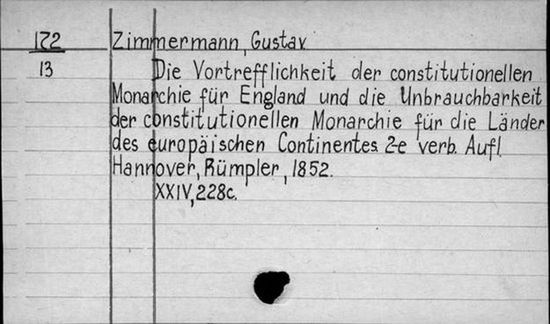 172 Zimmermann, Gustav
13 Die Vortrefflichkeit der constitutionellen
Monarchie für England und die Unbrauchbarkeit
der constitutionellen Monarchie für die Länder
des europäischen Continentes 2-e verb. Aufl.
Hannover, Rümpler, 1852.
XXIV, 228c.